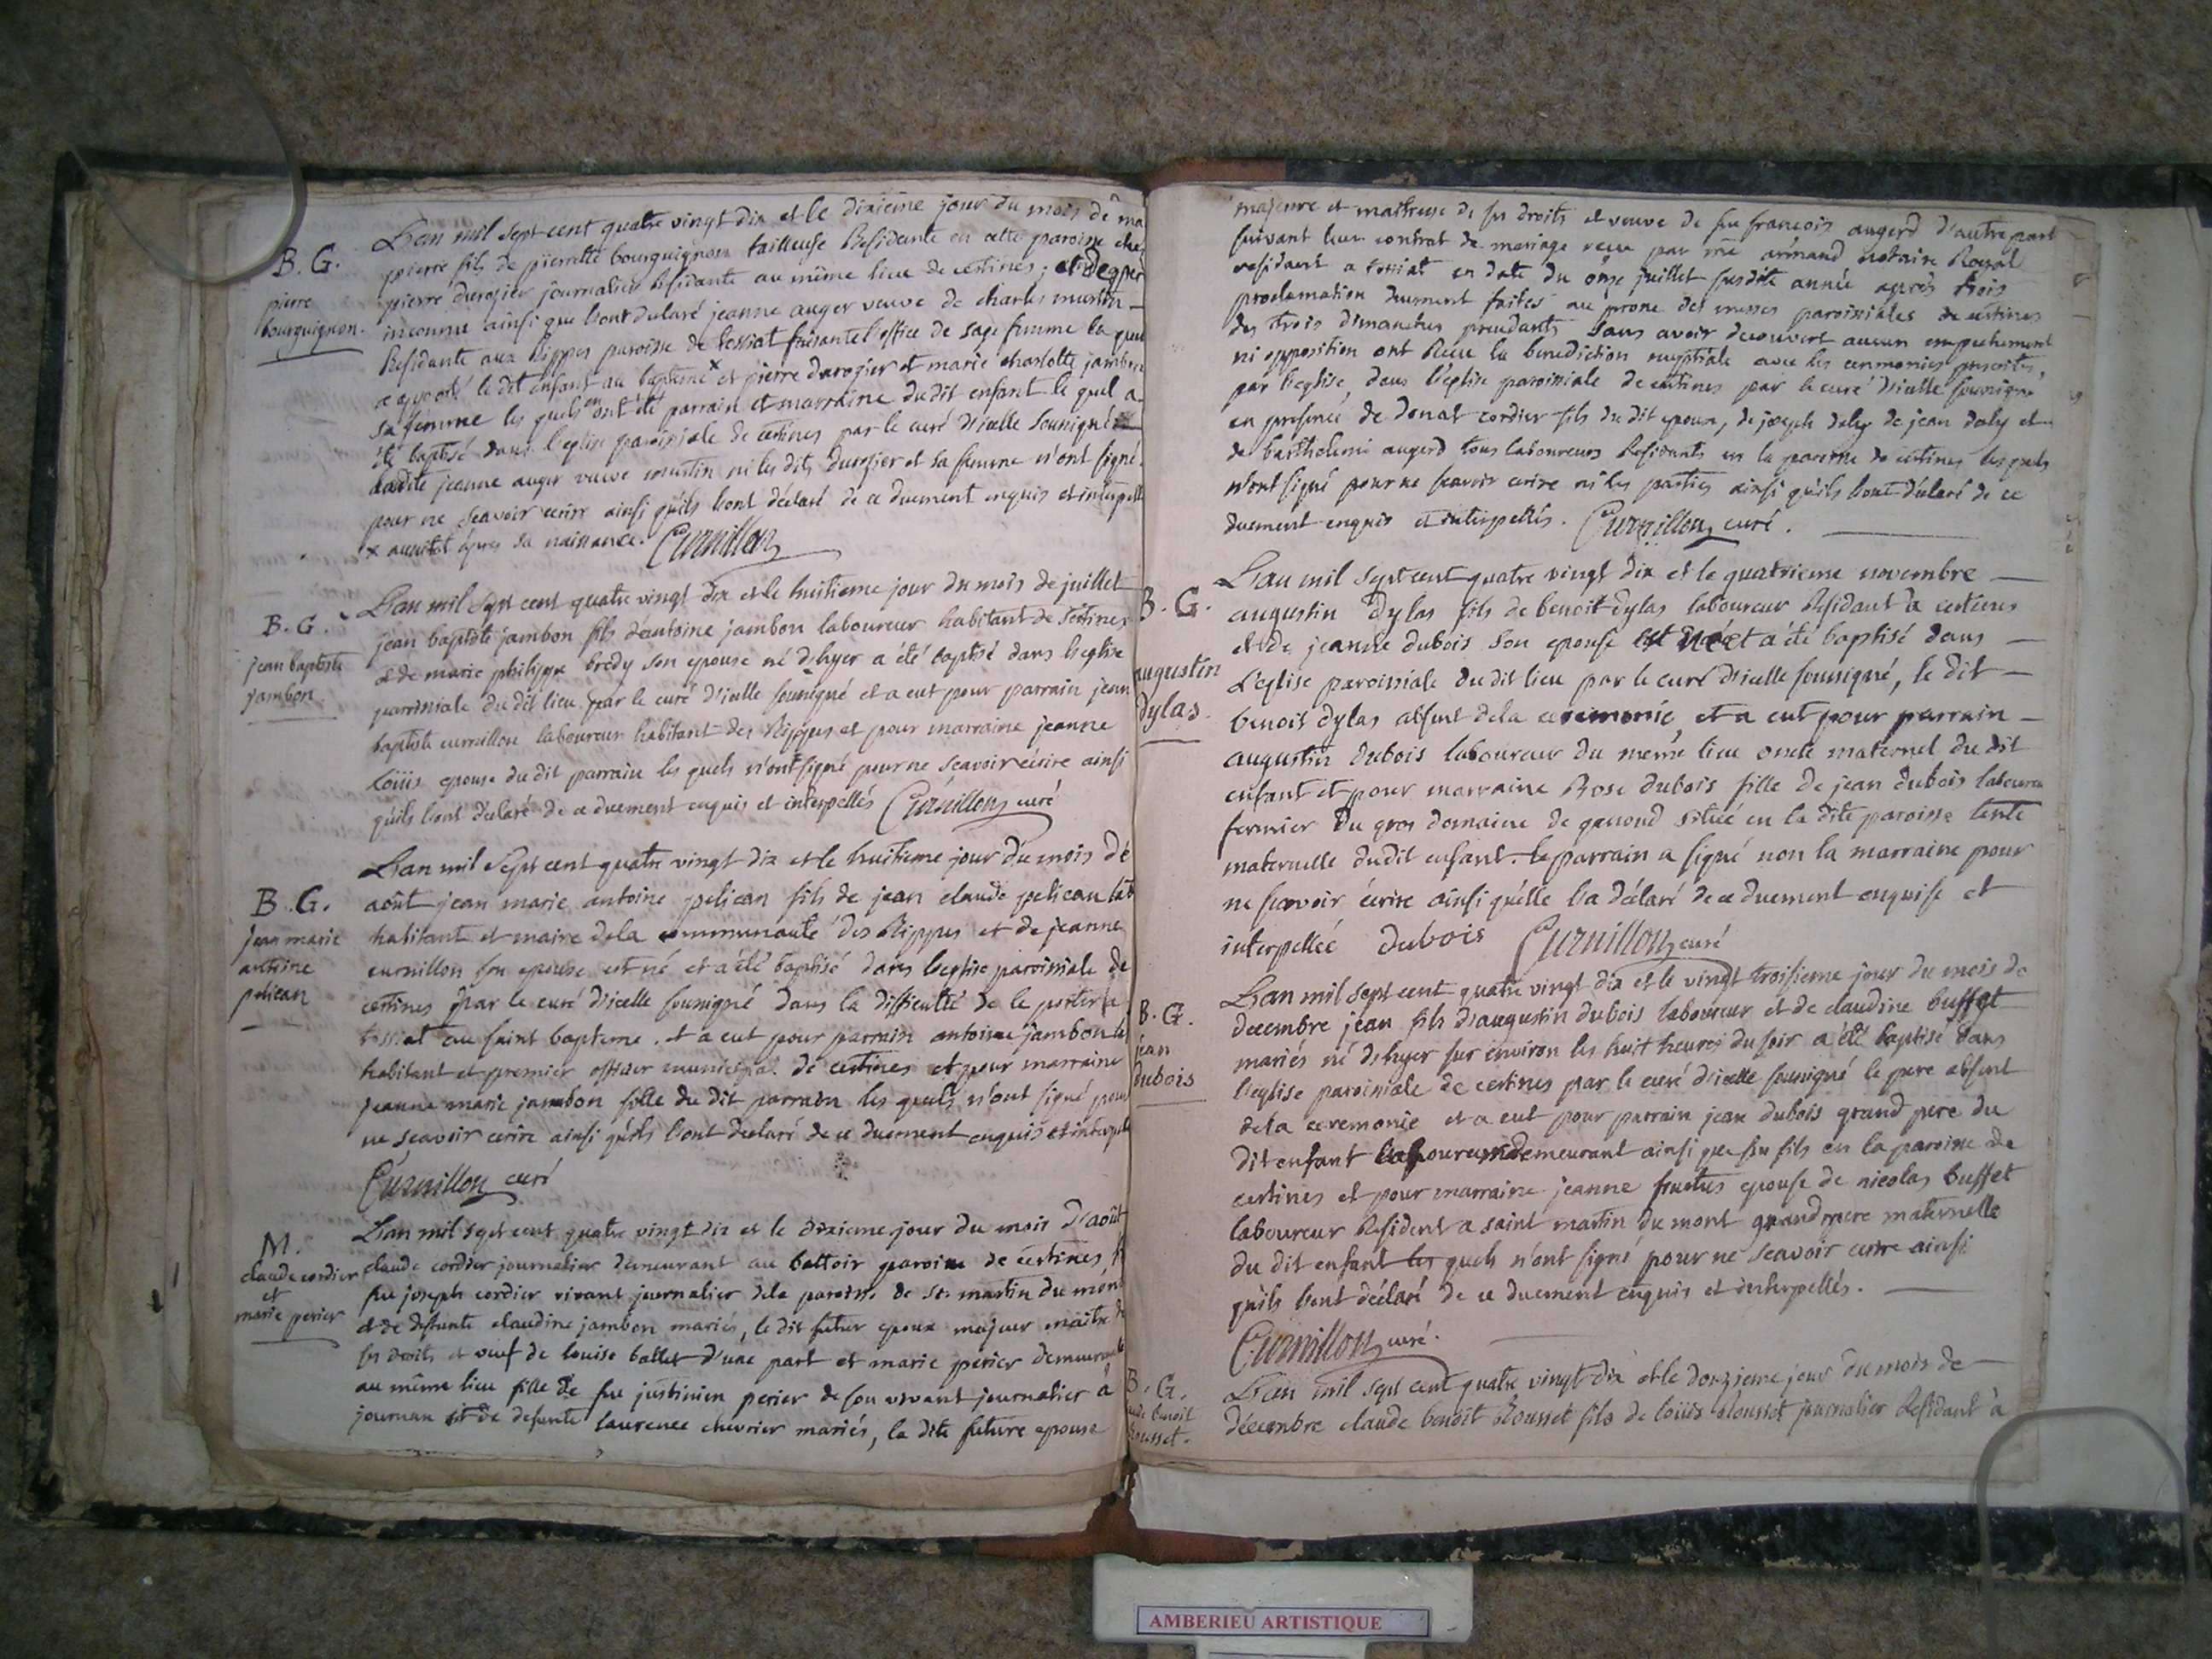 B. G.
pierre
bourguignon.
L'an mil sept cent quatre vingt dix et le dixieme jour du mois de ma
pierre fils de pierrette bourguignon tailleuse Residante en cette paroisse chez
pierre durogier journalier Residante au même lieu de certines; et de pere
inconnu ainsi que l'ont declaré jeanne auger veuve de charles mustin
Residante aux Rippes paroisse de tossiat faisante l'office de sage femme la quel
a apporté le dit enfant au baptême x et pierre durogier et marie charlotte jambon
sa femme les quels en ont été parrain et marraine du dit enfant le quel a
été baptisé dans l'eglise paroissiale de certines par le curé d'icelle soussigné
ladite jeanne auger veuve mustin ni les dits durogier et sa femme n'ont signé
pour ne sçavoir ecrire ainsi qu'ils l'ont déclaré de ce duement enquis et interpellé
x aussitot après sa naissance. Curnillon
B. G.
jean baptiste
jambon
L'an mil sept cent quatre vingt dix et le huitieme jour du mois de juillet
jean baptiste jambon fils d'antoine jambon laboureur habitant de certines
et de marie philippe bredy son epouse né d'hyer a été baptisé dans l'eglise
parroissiale du dit lieu par le curé d'icelle soussigné et a eut pour parrain jean
baptiste curnillon laboureur habitant des Rippes et pour marraine jeanne
loüis epouse du dit parrain les quels n'ont signé pour ne sçavoir écrire ainsi
qu'ils l'ont déclaré de ce duement enquis et interpellés Curnillon curé
B. G.
jean marie
antoine
pelican
L'an mil sept cent quatre vingt dix et le huitieme jour du mois de
août jean marie antoine pelican fils de jean claude pelican lab
habitant et maire de la communauté des Rippes et de jeanne
curnillon son epouse est né et a été baptisé dans l'eglise paroissiale de
certines par le curé d'icelle soussigné dans la difficulté de le porter a
tossiat au saint bapteme. et a eut pour parrain antoine jambon
habitant et premier officier municipal de certines et pour marraine
jeanne marie jambon fille du dit parrain les quels n'ont signé pour
ne sçavoir ecrire ainsi qu'ils l'ont declaré de ce duement enquis et interpelé
Curnillon curé
M.
claude cordier
et
marie perier
L'an mil sept cent quatre vingt dix et le dixieme jour du mois d'août
claude cordier journalier demeurant au battoir paroisse de certines, f
feu joseph cordier vivant journalier de la paroisse de St martin du mont
et de defunte claudine jambon mariés, le dit futur epoux majeur maitre de
ses droits et veuf de louise ballet d'une part et marie perier demeurante
au même lieu fille de feu justinien perier de son vivant journalier à
journan et de defunte laurence chevrier mariés, la dite future epouse
majeure et maitresse de ses droits et veuve de feu francois augerd d'autre part
suivant leur contrat de mariage reçu par me armand notaire Royal
residant a tossiat en date du onze juillet susdite année après trois
proclamation duement faites au prone des messes paroissiales de certines
des trois dimanches precedants sans avoir decouvert aucun empechement
ni opposition ont Reçu la benediction nuptiale avec les ceremonies prescrites
par l'eglise, dans l'eglise paroissiale de certines par le curé d'icelle soussigné
en presence de donat cordier fils du dit epoux, de joseph dely de jean dely et
de barthelemi augerd tous laboureurs Residants en la paroisse de certines les quels
n'ont signé pour ne sçavoir ecrire ni les parties ainsi qu'ils l'ont déclaré de ce
duement enquis et interpellés. Curnillon curé.
B. G.
augustin
dylas
L'an mil sept cent quatre vingt dix et le quatrieme novembre
augustin dylas fils de benoit dylas laboureur Residant a certines
et de jeanne dubois son epouse est né et a été baptisé dans
l'eglise paroissiale du dit lieu par le curé d'icelle soussigné, le dit
benoit dylas absent de la ceremonie, et a eut pour parrain
augustin dubois laboureur du meme lieu oncle maternel du dit
enfant et pour marraine Rose dubois fille de jean dubois laboureur
fermier du gros domaine de genoud située en la dite paroisse tante
maternelle dudit enfant. le parrain a signé non la marraine pour
ne sçavoir écrire ainsi qu'elle l'a déclaré de ce duement enquise et
interpellée dubois Curnillon curé
B. G.
jean
dubois
L'an mil sept cent quatre vingt dix et le vingt troisieme jour du mois de
decembre jean fils d'augustin dubois laboureur et de claudine buffet
mariés né d'hyer sur environ les huit heures du soir a été baptisé dans
l'eglise paroissiale de certines par le curé d'icelle soussigné le pere absent
de la ceremonie et a eut pour parrain jean dubois grand pere du
dit enfant laboureur demeurant ainsi que son fils en la paroisse de
certines et pour marraine jeanne epouse de nicolas buffet
laboureur Resident a saint martin du mont grand mere maternelle
du dit enfant les quels n'ont signé pour ne sçavoir ecrire ainsi
qu'ils l'ont déclaré de ce duement enquis et interpellés.
Curnillon curé.
B. G.
benoit
ousset.
L'an mil sept cent quatre vingt dix et le douzieme jour du mois de
decembre claude benoit Rousset fils de loüis Rousset journalier Residant à
AMBERIEU ARTISTIQUE